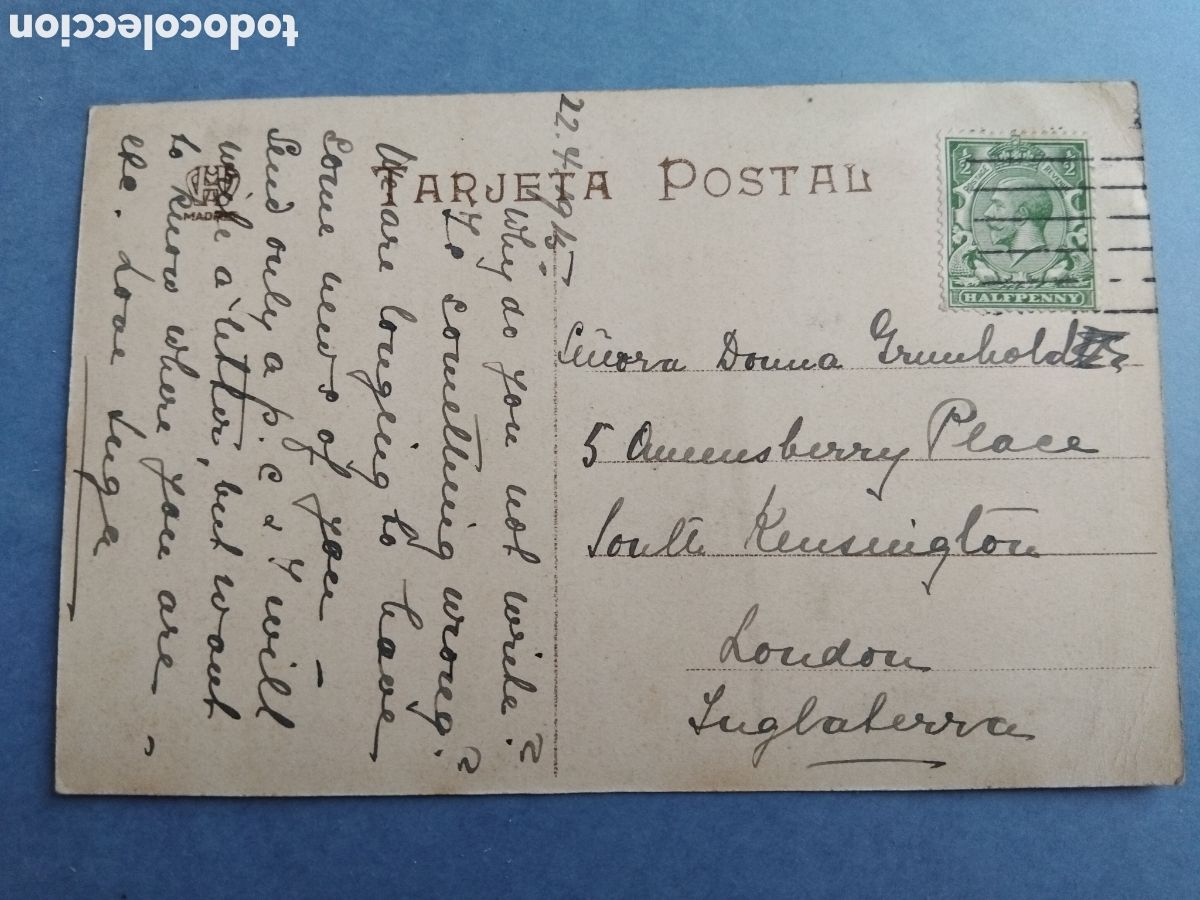 todocoleccion
TARJETA POSTAL
MADRID
HALFPENNY
½ ½
22.4.1915
Why do you not write?
Is something wrong?
We are longing to have
some news of you -
Send only a p.c & I will
write a letter, but want
to know where you are -
Love Inga
Señora Donna Grunhold
5 Queensberry Place
South Kensington
London
Inglaterra